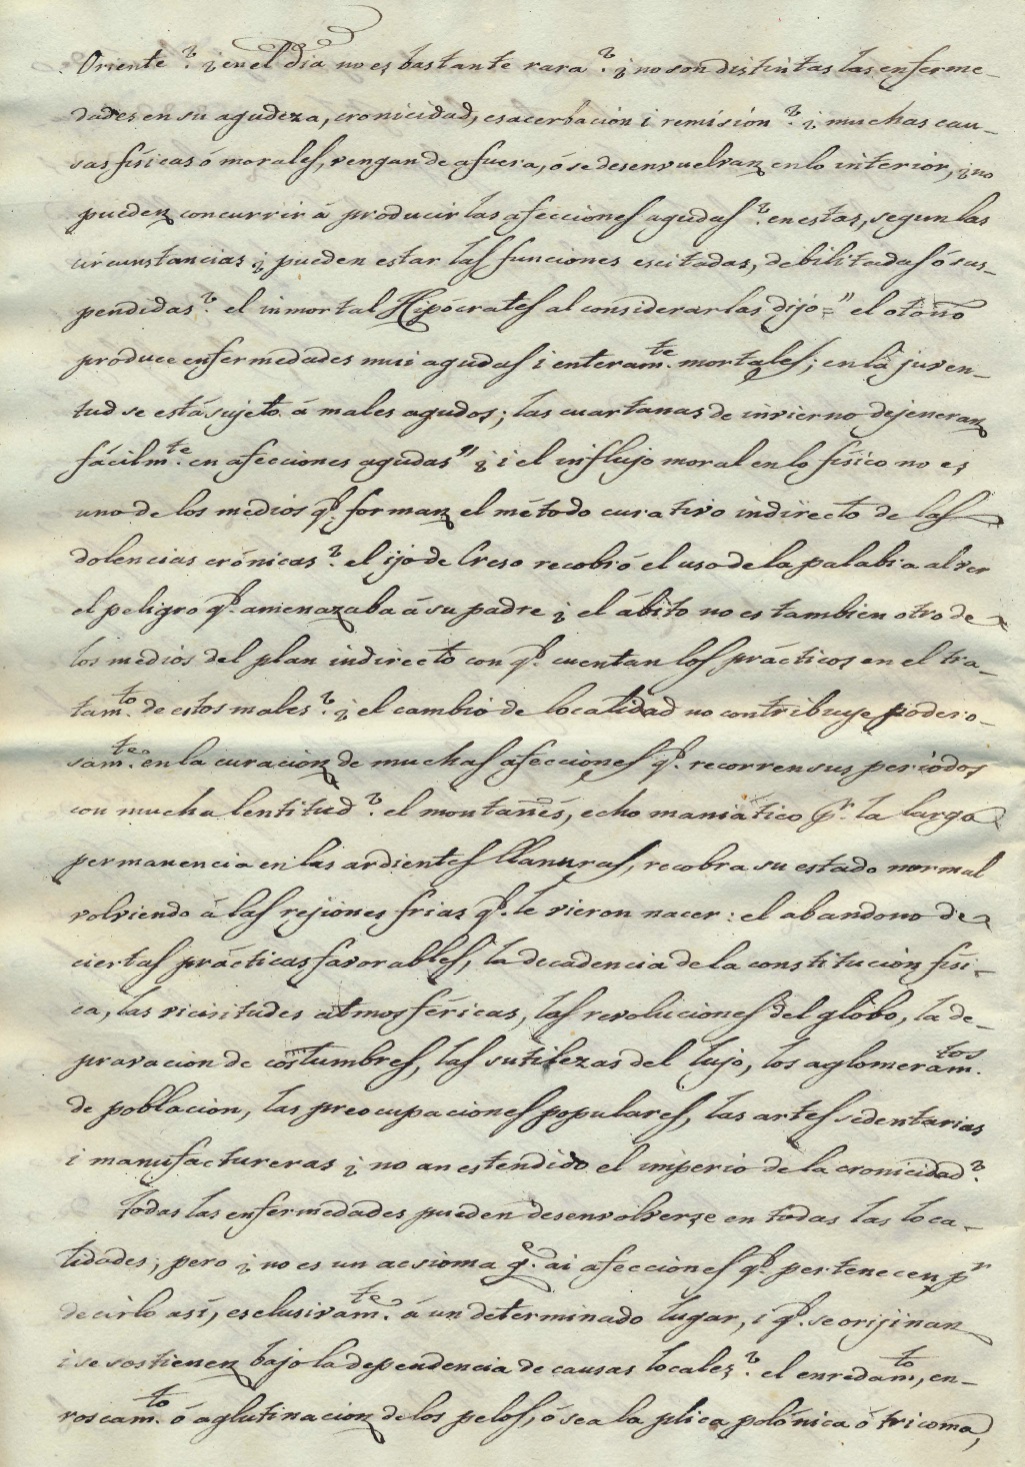 Oriente? ¿en el dia no es bastante rara? ¿no son distintas las enferme-
dades en su agudeza, cronicidad, esacerbacion i remision? ¿muchas cau-
sas fisicas ó morales, vengan de afuera, ó se desenvuelvan en lo interior, ¿no
pueden concurrir á producir las afecciones agudas? en estas, segun las
circunstancias ¿pueden estar las funciones escitadas, debilitadas ó sus-
pendidas? el inmortal Hipócrates al considerarlas dijo = "el otoño
produce enfermedades mui agudas i enteram.te mortales; en la juven-
tud se está sujeto á males agudos; las cuartanas de invierno dejeneran
fácilm.te en afecciones agudas" ¿i el influjo moral en lo físico no es
uno de los medios q.e forman el método curativo indirecto de las
dolencias crónicas? el ijo de Creso recobró el uso de la palabra al ver
el peligro q.e amenazaba á su padre ¿el ábito no es tambien otro de
los medios del plan indirecto con q.e cuentan los prácticos en el tra-
tam.to de estos males? ¿el cambio de localidad no contribuye podero-
sam.te en la curacion de muchas afecciones q.e recorren sus periodos
con mucha lentitud? el montañés, echo maniático p.r la larga
permanencia en las ardientes llanuras, recobra su estado normal
volviendo á las rejiones frias q.e le vieron nacer: el abandono de
ciertas prácticas favorables, la decadencia de la constitucion físi-
ca, las vicisitudes atmosféricas, las revoluciones del globo, la de-
pravacion de costumbres, las sutilezas del lujo, los aglomeram.tos
de poblacion, las preocupaciones populares, las artes sedentarias
i manufactureras ¿no an estendido el imperio de la cronicidad?
Todas las enfermedades pueden desenvolverse en todas las loca-
lidades; pero ¿no es un acsioma q.e ai afecciones q.e pertenecen, p.r
decirlo así, esclusivam.te á un determinado lugar, i q.e se orijinan
i se sostienen bajo la dependencia de causas locales? el enredam.to, en-
roscam.to ó aglutinacion de los pelos, ó sea la plica polónica ó tricoma,